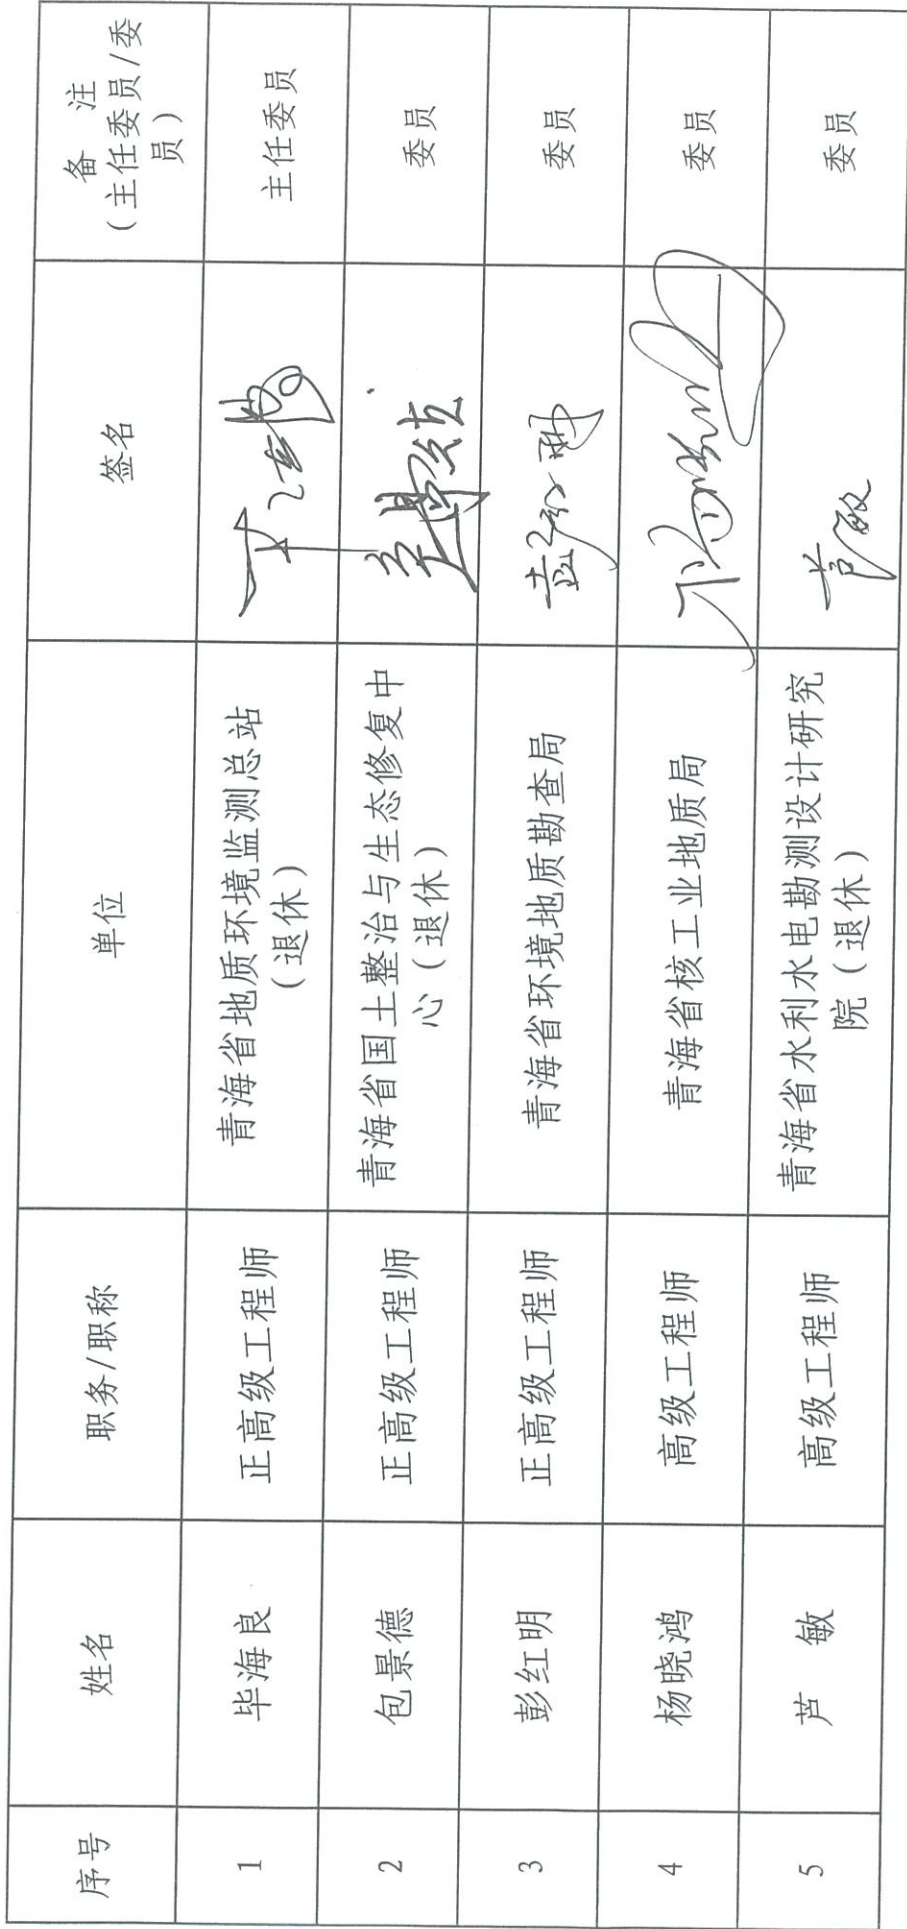 序号 姓名 职务/职称 单位 签名 备 注
(主任委员/委
员)
1 毕海良 正高级工程师 青海省地质环境监测总站
(退休) 主任委员
2 包景德 正高级工程师 青海省国土整治与生态修复中
心(退休) 委员
3 彭红明 正高级工程师 青海省环境地质勘查局 彭红明 委员
4 杨晓鸿 高级工程师 青海省核工业地质局 委员
5 芦 敏 高级工程师 青海省水利水电勘测设计研究
院(退休) 芦敏 委员